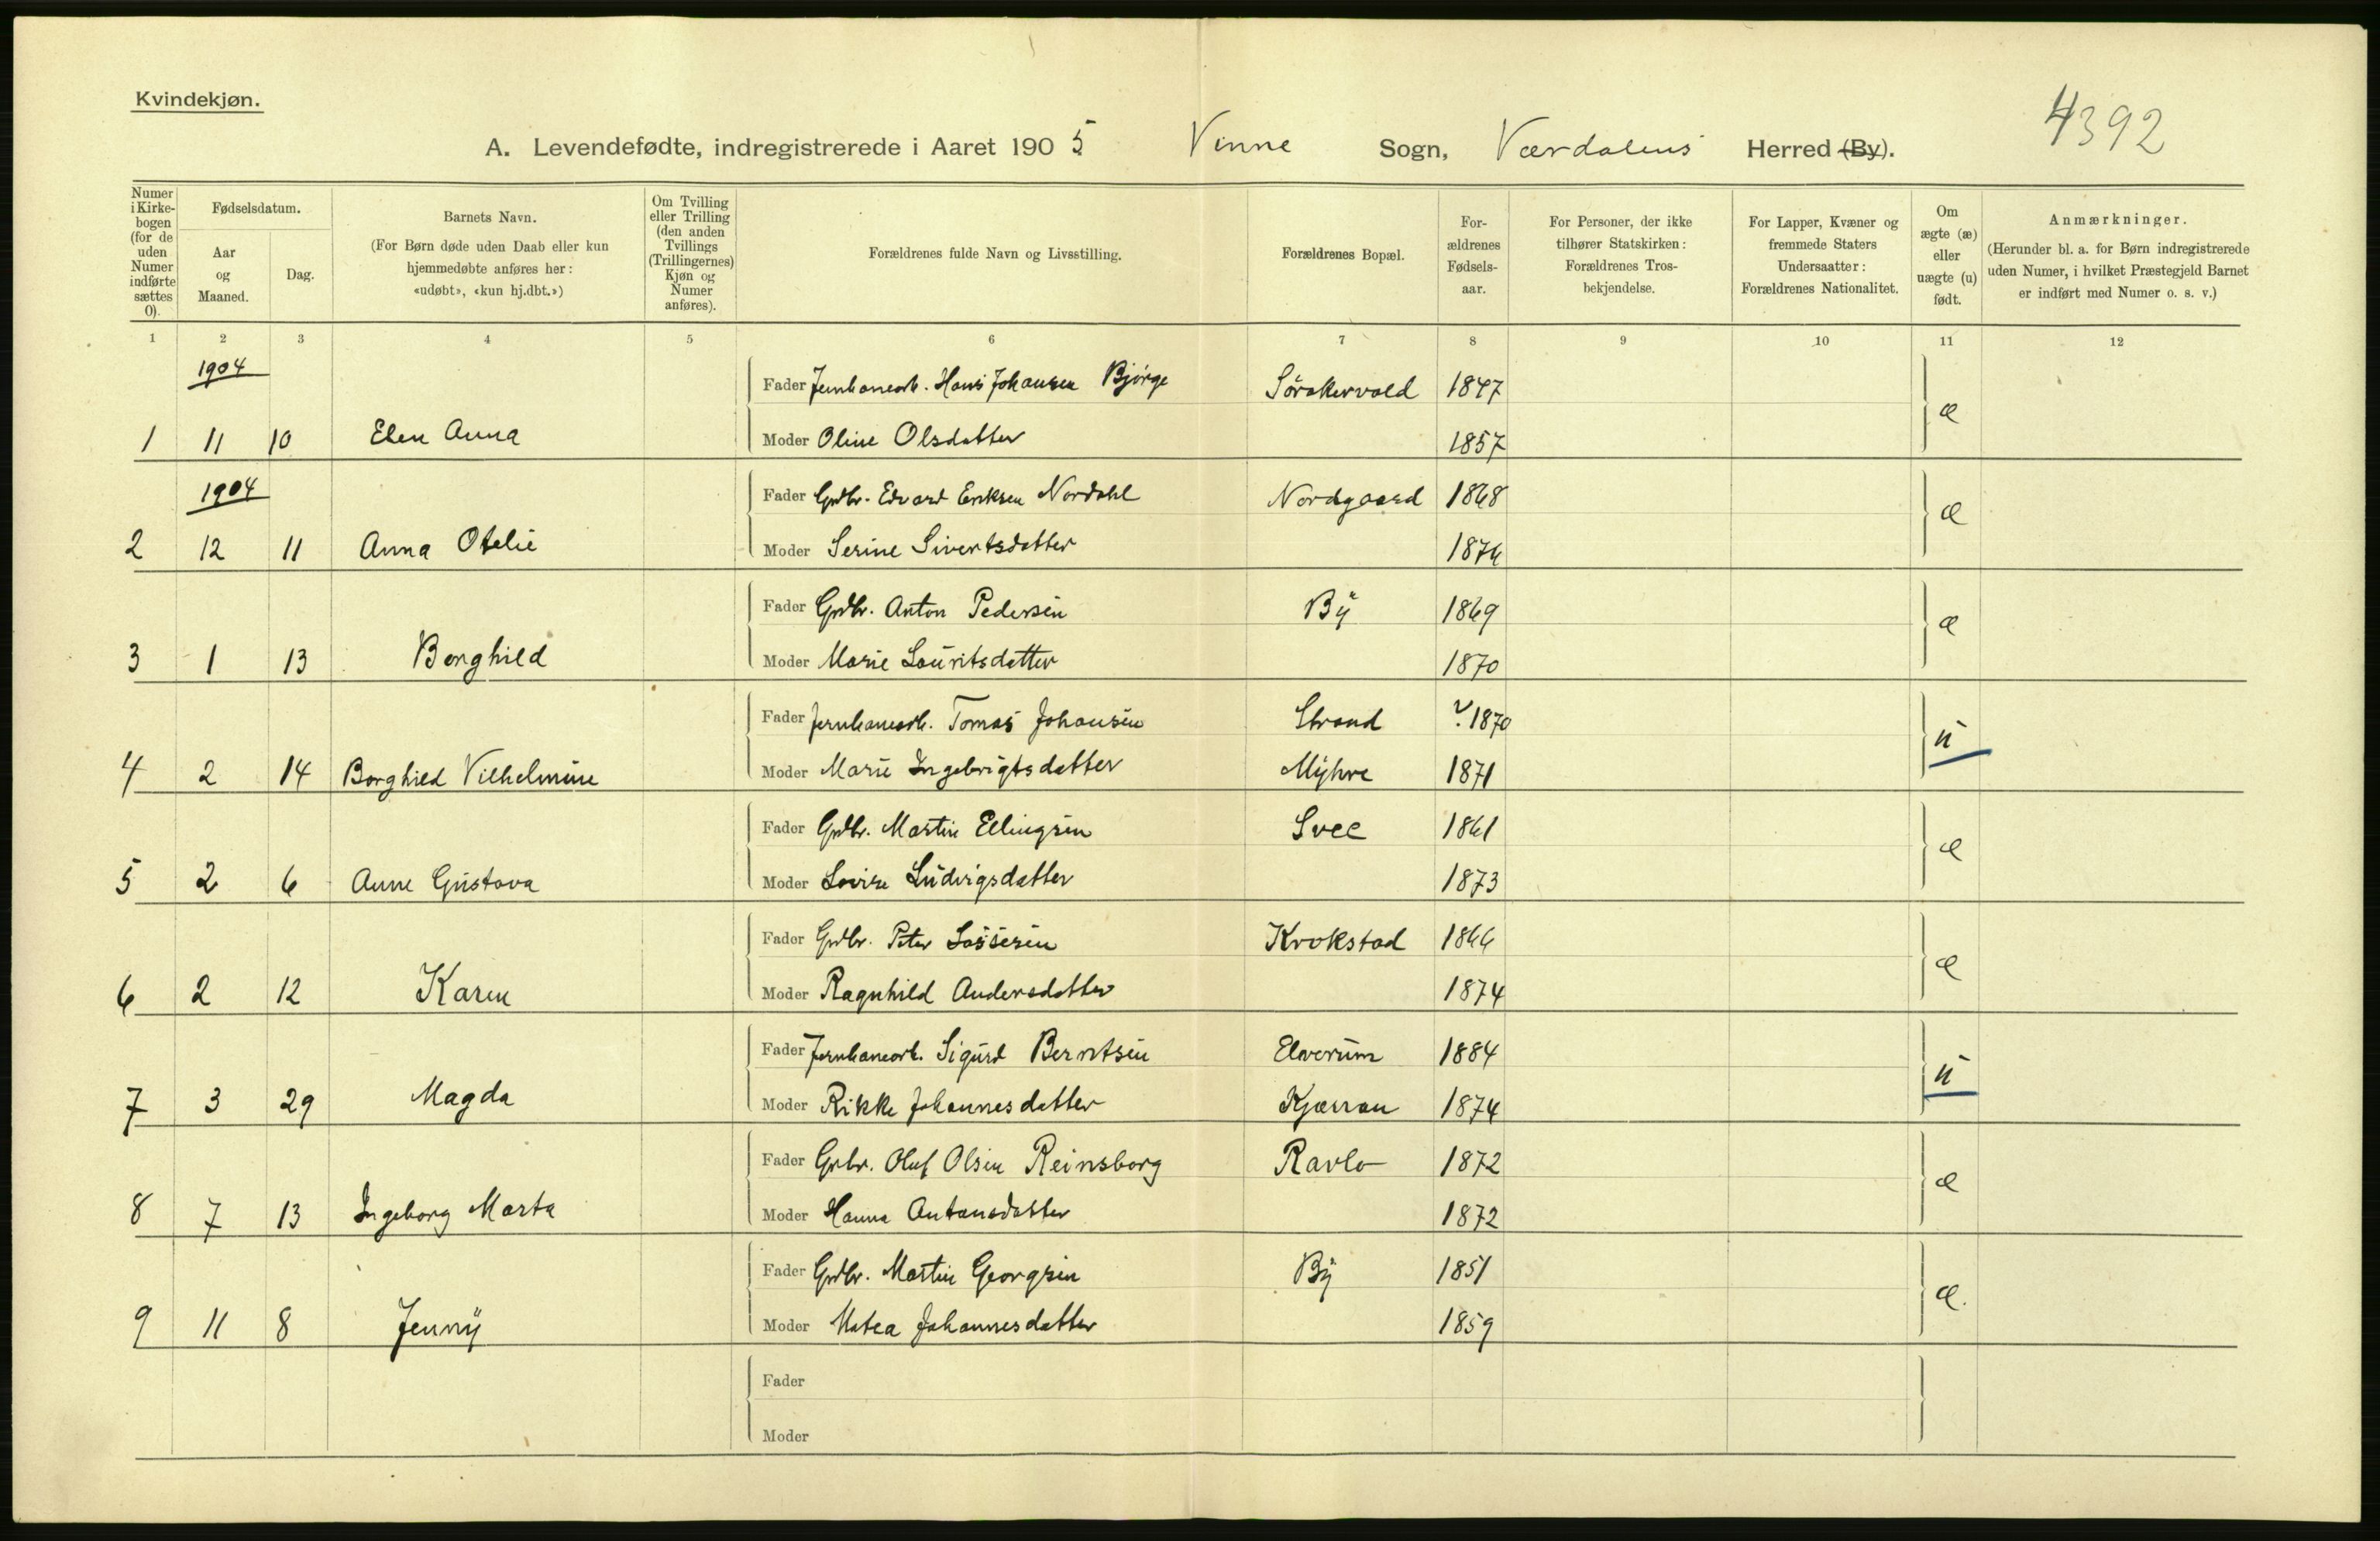 Kvindekjøn.
4392
A. Levendefødte, indregistrerede i Aaret 1905 Vinne Sogn, Værdalens Herred (By).
Numer i Kirke-bogen (for de uden Numer indførte sættes 0).
Fødselsdatum.
Aar og Maaned.
Dag.
Barnets Navn.
(For Børn døde uden Daab eller kun hjemmedøbte anføres her: «udøbt», «kun hj.dbt.»)
Om Tvilling eller Trilling (den anden Tvillings (Trillingernes) Kjøn og Numer anføres).
Forældrenes fulde Navn og Livsstilling.
Forældrenes Bopæl.
For-ældrenes Fødsels-aar.
For Personer, der ikke tilhører Statskirken: Forældrenes Tros-bekjendelse.
For Lapper, Kvæner og fremmede Staters Undersaatter: Forældrenes Nationalitet.
Om ægte (æ) eller uægte (u) født.
Anmærkninger.
(Herunder bl. a. for Børn indregistrerede uden Numer, i hvilket Præstegjeld Barnet er indført med Numer o. s. v.)
1 2 3 4 5 6 7 8 9 10 11 12
1904
Fader Jernbanearb. Hans Johansen Bjørge Sørakervald 1847
1 11 10 Elen Anna Moder Oline Olsdatter 1857 æ
1904
Fader Grdbr. Edvard Eriksen Nordahl Nordgaard 1868
2 12 11 Anna Otelie Moder Serine Sivertsdatter 1876 æ
Fader Grdbr. Anton Pedersen By 1869
3 1 13 Borghild Moder Marie Lauritsdatter 1870 æ
Fader Jernbanearb. Tomas Johansen Strand ? 1870
4 2 14 Borghild Vilhelmine Moder Marie Ingebrigtsdatter Myhre 1871 u
Fader Grdbr. Martin Ellingsen Svee 1861
5 2 6 Anne Gustava Moder Lovise Ludvigsdatter 1873 æ
Fader Grdbr. Peter Lassesen Krokstad 1866
6 2 12 Karen Moder Ragnhild Andersdatter 1874 æ
Fader Jernbanearb. Sigurd Berntsen Elverum 1884
7 3 29 Magda Moder Rikke Johannesdatter Kjærran 1874 u
Fader Grbr. Oluf Olsen Reinsborg Ravlo 1872
8 7 13 Ingeborg Marta Moder Hanna Antonsdatter 1872 æ
Fader Grdbr. Martin Georgsen By 1851
9 11 8 Jenny Moder Matea Johannesdatter 1859 æ.
Fader
Moder